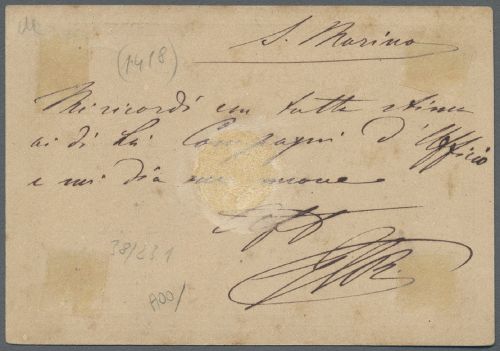 (1418)
S. Marino
Mi ricordi con tutta stima
ai di Lei Compagni d'Ufficio
e mi dia
38/231
A00/